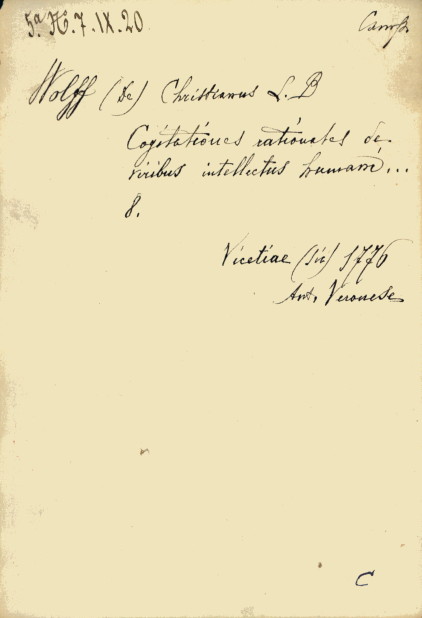 5.ª H.7.IX.20
Camp.
Wolff (De) Christianus L. B
Cogitationes rationales de
viribus intellectus humani...
8.
Vicetiae (sic) 1776
Ant. Veronese
C